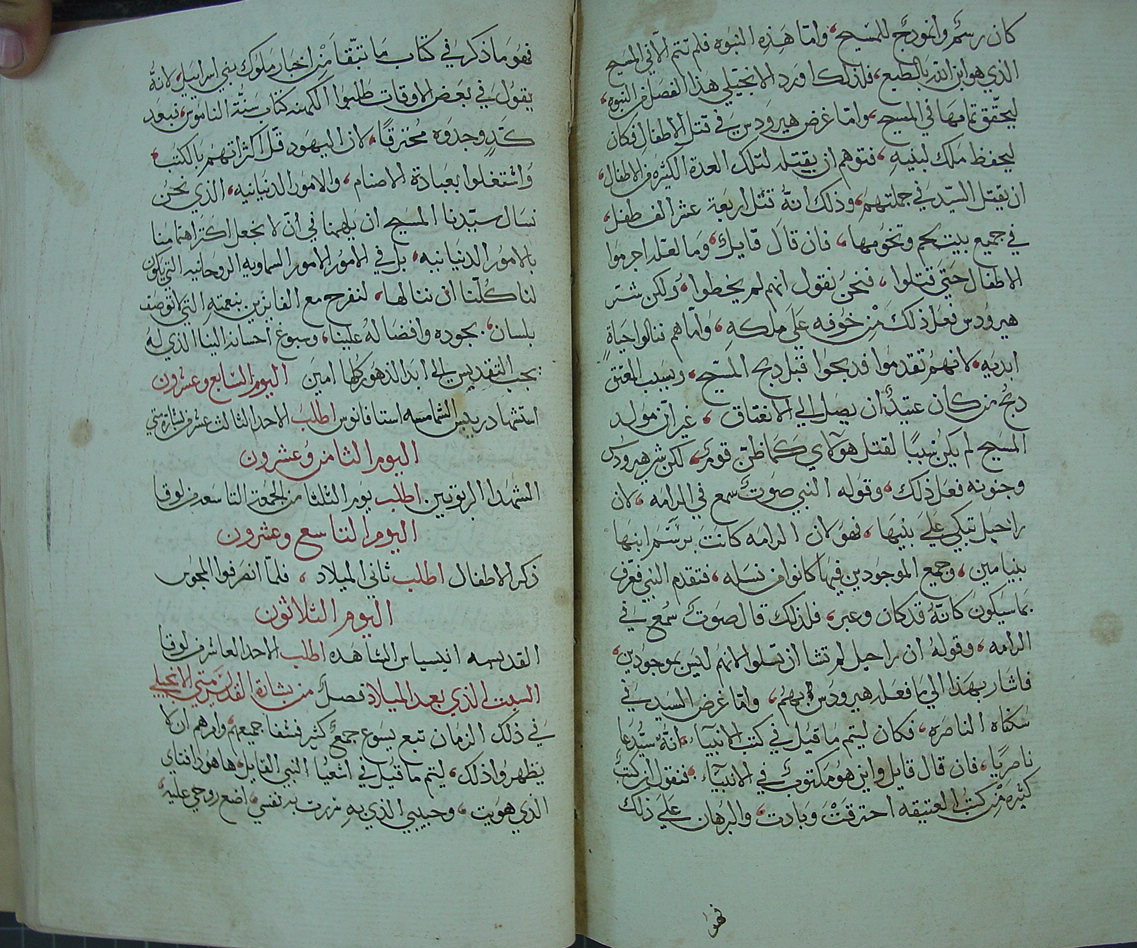 كان رسم وانموذج للمسيح، وامّا هذه النبوه فلم تتم الّا في المسيح
الذي هو ابن الله بالطبع، فلذلك اورد الانجيلي هذا الفصل من النبوه،
ليحقق تمامها في المسيح، وامّا غرض هيرودس في قتل الاطفال فكان
ليحفظ ملك لبنيه، فتوهم ان بقتله لتلك العدة الكثيره من الاطفال،
ان يقتل السيّد في جملتهم، وذلك انهُ قتل اربعة عشر الف طفل،
في جميع بيتلحم وتخومها، فان قال قايل، وما لعله اجرموا
الاطفال حتى قتلوا، فنحن نقول انهم لم يخطوا، ولكن شر
هيرودس فعل ذلك مِن خوفه على ملكهِ، وامّا هم فنالوا حياةٍ
ابديه، لانهم تقدموا فدبحوا قبل دبح المسيح، وبسبب العتق
دبح من كان عتيدٌ ان يصل الى الانعتاق، غير انّ مولد
المسيح لم يكن سببًا لقتل هولاي كما ظن قوم، لكن شر هيرودس
وجنونه فعل ذلك، وقوله النبي صوت سمع في الرامه، لان
راحيل تبكي على بنيها، فهو لان الرامه كانت برسم ابنها
بنيامين، وجميع الموجودين فيها كانوا من نسله، فتقدم النبي فعرف
بما سيكون كانّهُ قد كان وعبر، فلذلك قال صوتٌ سُمع في
الرامه، وقوله ان راحيل لم تشا ان تسلوا لانهم ليس بموجودين،
فاشار بهذا الى ما فعله هيرودس بهم، وامّا غرض السيد في
سكناه الناصره، فكان ليتم ما قيل في كتب الانبياء، انّهُ سيُدعا
ناصريًا، فان قال قايل واين هو مكتوبٌ في الانبياء، فنقول ان كتبٌ
كثيره مِن كتب العتيقه احترقتْ وبادت، والبرهان على ذلك
فهو
فهو ما ذكر في كتاب ما تبقا مِن اخبار ملوك بني اسراييل، لانهُ
يقول في بعض الاوقات طلبوا الكهنه كتاب سنّة الناموس، فبعد
كدٍ وجدوه محترقًا، لان اليهود قلّ اكتراثهم بالكتب،
واشتغلوا بعبادة الاصنام، والامور الدنيانيه، الذي نحن
نسال سيّدنا المسيح ان يلهمنا في انّ لا نجعل اكتراثنا هنا
بالامور الدنيانيه، بل في الامور السماويه الروحانيه التي يكون
لنا كلّنا ان ننالها، لنفرح مع الفايزين بنعمته التي لا توصف
بلسان، بجوده وافضاله علينا، وسبوغ احسانه الينا الذي له
يجب التقديس الى ابد الدهور كلها امين اليوم السابع وعشرون
استشهاد رييس الشمامسه استافانوس اطلب الاحد الثالث عشر من بشارة متي
اليوم الثامن وعشرون
الشهدا الربوتين اطلب يوم الثلثا من الجمعه التاسعه من لوقا
اليوم التاسع وعشرون
ذكر الاطفال اطلب ثاني الميلاد، فلمّا انصرفوا المجوس
اليوم الثلاثون
القديسه انيسيا الشاهده اطلب الاحد العاشر من لوقا
السبت الذي بعد الميلاد فصلٌ من بشارة القديس متى الانجيلي
في ذلك الزمان تبع يسوع جمعٌ كثير فشفا جميعهم، وامرهم ان لا
يظهروا ذلك، ليتم ما قيل في اشعيا النبي القايل، ها هوذا فتاي
الذي هويت، وحبيبي الذي بهِ سرت به نفسي، اضع روحي عليه،